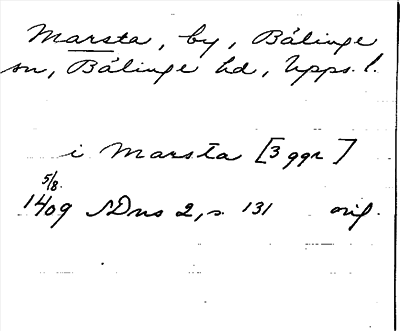 Marsta, by, Bälinge
sn, Bälinge hd, Upps. l.
i Marsta [3 ggr]
5/8.
1409 SDns 2, s. 131 orig.